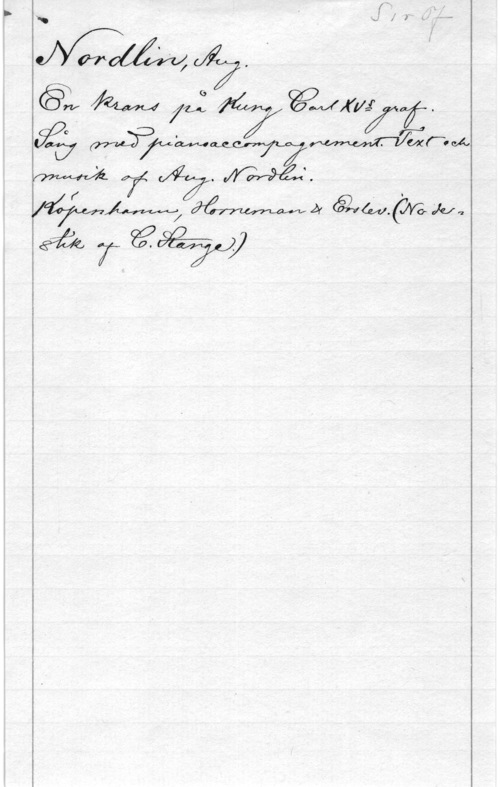 Nordlin, Aug.
En krans på Kung Carl XVs graf.
Sång med pianoaccompagnement. Text och
musik af Aug. Nordlin.
Köpenhamn, Horneman & Erslev. (Node-
stik af C. Stange.)